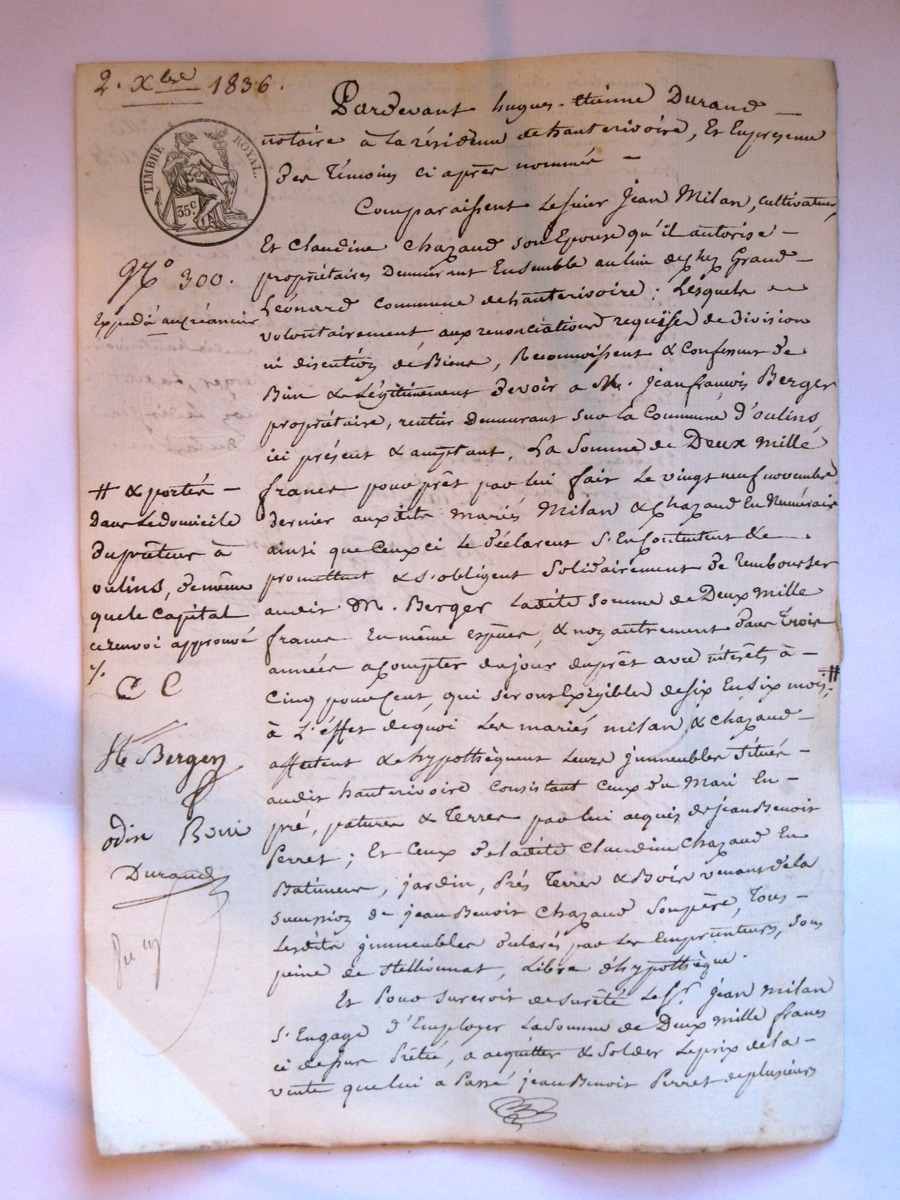 2. Xbre 1836.
TIMBRE ROYAL.
35 c.
N.º 300.
Expédié au créancier
Pardevant hugues-Etienne Durand
notaire à la résidence de hauterivoire, Et En présence
des Témoins ci après nommés
Comparaissent Le sieur Jean Milan, cultivateur,
Et Claudine Chazaud son Epouse qu'il autorise
propriétaires Demeurant Ensemble au lieu de chez Grand
Léonard commune de hauterivoire ; Lesquels
volontairement, aux renonciations requises de division
ni discution de Biens, Reconnoissent & Confessent de
Bien & Légitimement devoir a M. Jean françois Berger
propriétaire, rentier demeurant sur la Commune d'oulins
ici présent & acceptant, La Somme de Deux mille
francs pour prêt par lui fait Le vingt neuf novembre
dernier aux dits mariés Milan & Chazaud En Numéraire
ainsi que Ceux ci le déclarent s'En Contentent &
promettent & s'obligent Solidairement de rembourser
audit M. Berger Ladite somme de Deux mille
francs En même espèces, & non autrement dans Trois
années a compter du jour du prêt avec intérêts à
Cinq pour Cent, qui seront Exigibles de six En six mois #
à L'effet de quoi Les mariés milan & chazaud
affectent & hypothèquent Leurs immeubles Situés
audit hauterivoire Consistant Ceux du Mari En
pré, patures & Terres par lui acquis de Jean Benoit
Perret ; Et Ceux de ladite Claudine Chazaud En
Batimens, jardin, Prés Terres & Bois venant de la
succession de jean Benoit Chazaud Son père, Tous
Lesdits immeubles déclarés par Les Emprunteurs, sous
peine de Stellionnat, Libre d'hypothèque.
Et Pour surcroit de sureté Le Sr. Jean milan
S'Engage d'Employer La Somme de Deux mille francs
ci dessus Prêtée, a acquitter & Solder Le prix de la
vente que lui a Passé jean Benoit Perret de plusieurs
# & portés
dans Le domicile
du prêteur à
oulins, de même
que le Capital
ce renvoi approuvé
C C
Berger
odin
Durand